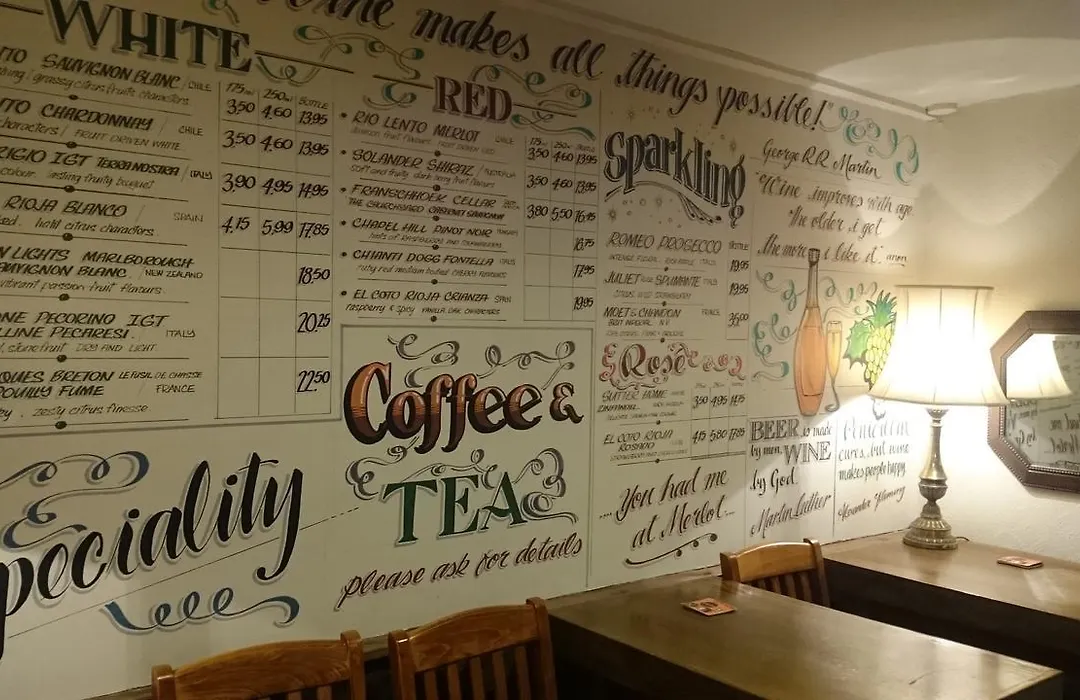 Wine makes all things possible!"
George R.R. Martin
WHITE
175ml 250ml BOTTLE
SAUVIGNON BLANC / CHILE
grassy citrus fruits characters
3,50 4,60 13,95
CHARDONNAY / CHILE
characters / FRUIT DRIVEN WHITE
3,50 4,60 13,95
IGT TERRA NOSTRA (ITALY)
fruity bouquet
3,90 4,95 14,95
RIOJA BLANCO / SPAIN
citrus characters
4,15 5,99 17,85
LIGHTS MARLBOROUGH
SAUVIGNON BLANC / NEW ZEALAND
vibrant passion fruit flavours
18,50
PECORINO IGT
PECARESI. ITALY
stonefruit DRY AND LIGHT
20,25
JACQUES BRETON LE FUSIL DE CHASSE
POUILLY FUME / FRANCE
zesty citrus finesse
22,50
RED
175ml 250ml BOTTLE
• RIO LENTO MERLOT CHILE
3,50 4,60 13,95
• SOLANDER SHIRAZ
soft and fruity, dark berry fruit flavours
3,50 4,60 13,95
• FRANSCHHOEK CELLAR
THE CHURCHYARD CABERNET SAUVIGNON
3,80 5,50 16,45
• CHAPEL HILL PINOT NOIR
hints of RASPBERRIES AND STRAWBERRIES
16,75
• CHIANTI DOGG FONTELLA ITALY
ruby red medium bodied CHERRY FLAVOURS
17,95
• EL COTO RIOJA CRIANZA SPAIN
raspberry & spicy VANILLA OAK CHARACTERS
19,95
Sparkling
BOTTLE
ROMEO PROSECCO
INTENSE FLORAL ITALY
19,95
JULIET SPUMANTE ITALY
CITRUS AND STRAWBERRY
19,95
MOET & CHANDON FRANCE
BRUT IMPERIAL N.V
35,00
Rosé
SUTTER HOME
ZINFANDEL
3,50 4,95 14,75
EL COTO RIOJA
ROSADO
4,15 5,80 17,85
You had me
at Merlot...
"Wine improves with age.
the older i get
the more i like it".
BEER is made
by men, WINE
by God.
Martin Luther
Penicillin
cures, but wine
makes people happy.
Alexander Fleming
Coffee &
TEA
please ask for details
Speciality